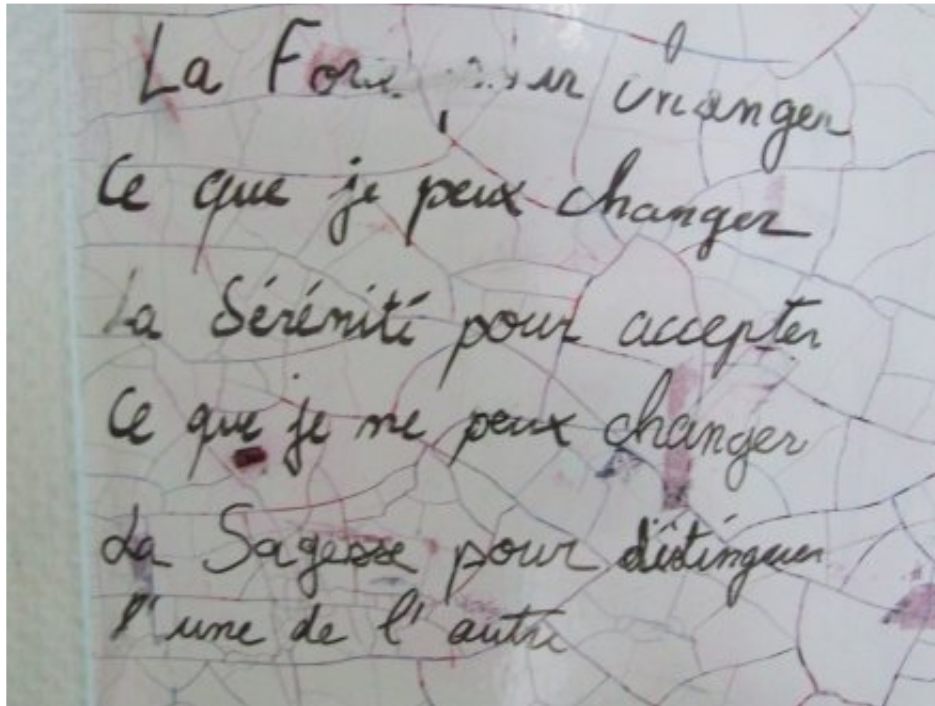 La Force pour changer
Ce que je peux changer
La Sérénité pour accepter
Ce que je ne peux changer
La Sagesse pour distinguer
l'une de l'autre